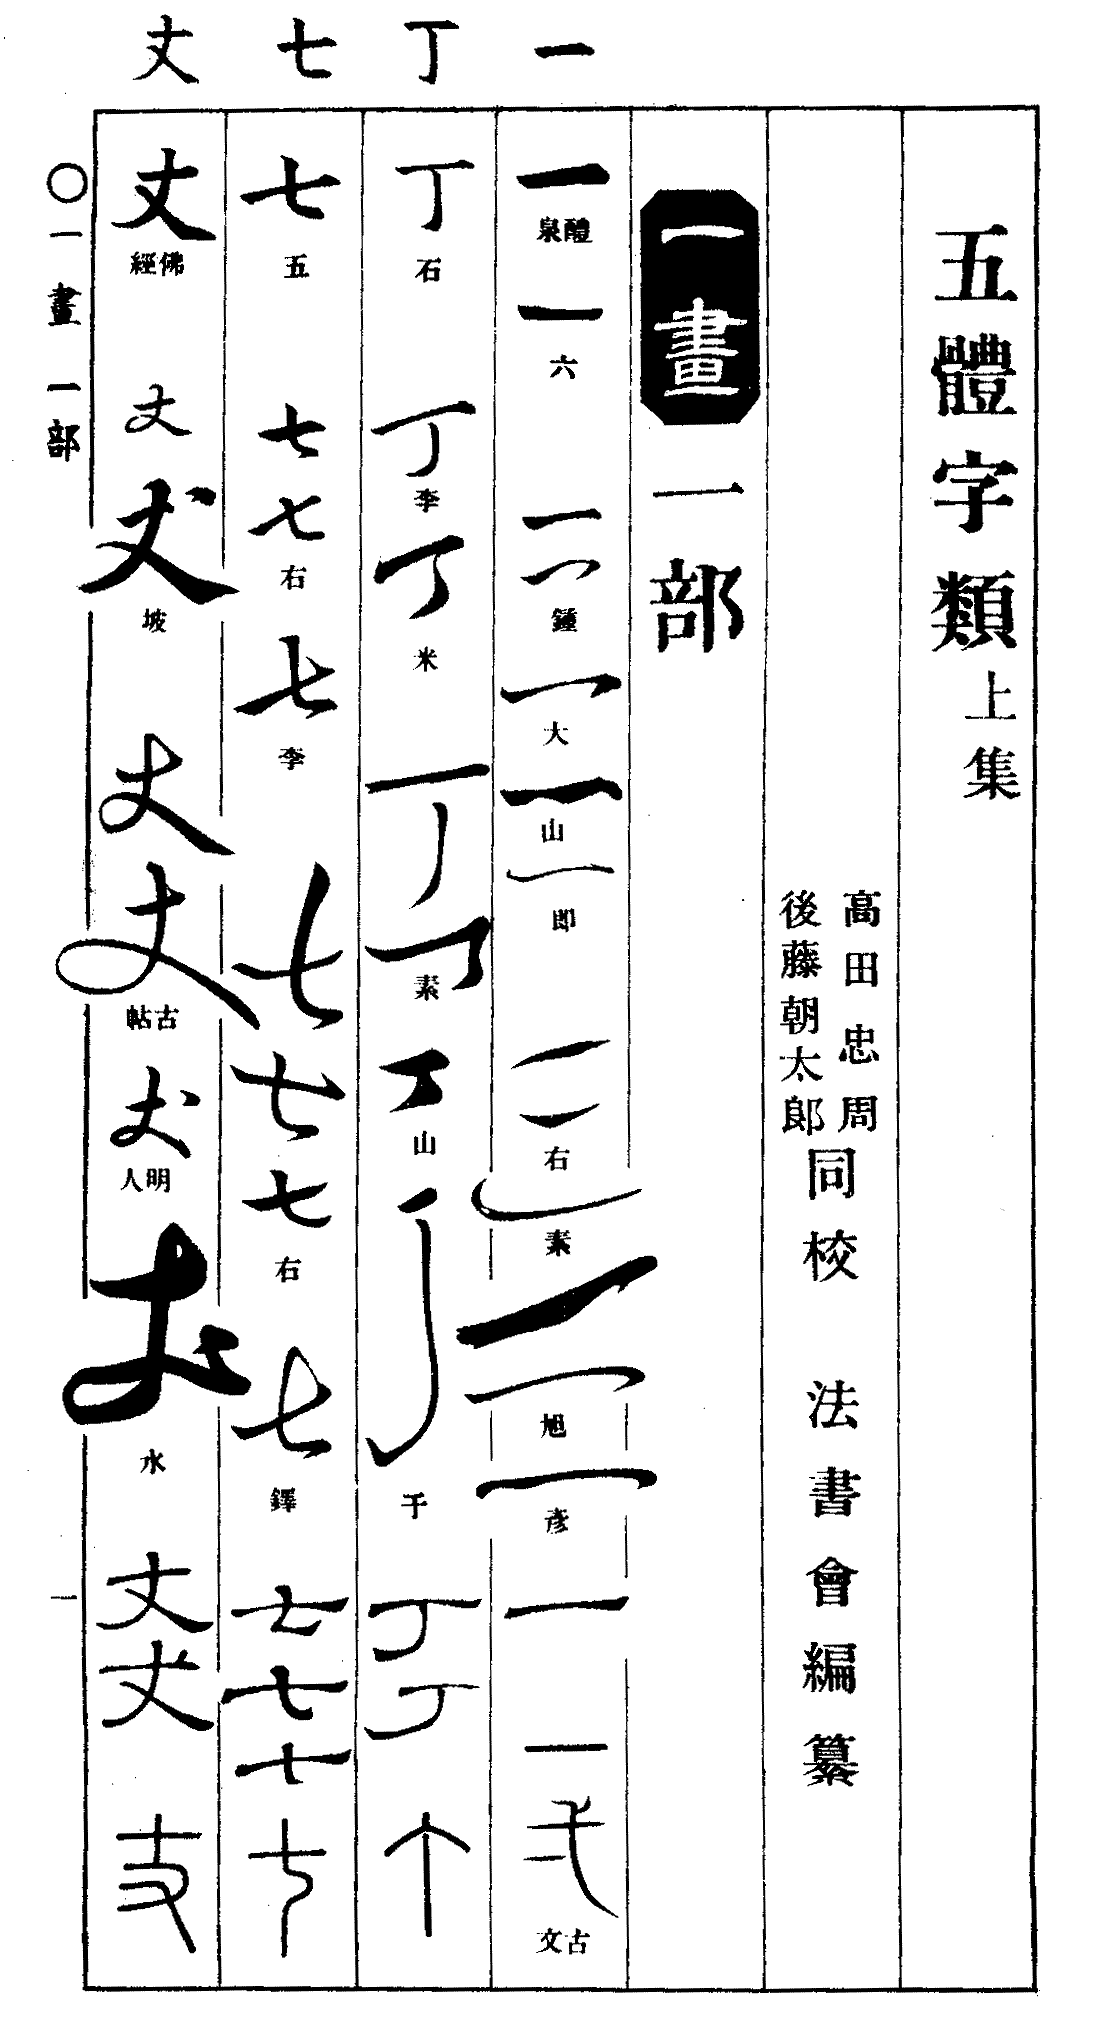 五體字類上集
高田忠周
後藤朝太郎
同校
法書會編纂
一畫
一部
一
一
醴泉
一
六
一
一
鍾
一
大
一
山
一
即
一
一
右
一
素
一
一
旭
一
彥
一
一
弌
古文
丁
丁
石
丁
李
丁
米
丁
丁
素
丁
山
丁
于
丁
丁
丁
七
七
五
七
七
右
七
李
七
七
七
右
七
鐸
七
七
七
七
丈
丈
佛經
丈
丈
坡
丈
丈
古帖
丈
明人
丈
水
丈
丈
丈
〇一畫 一部
一